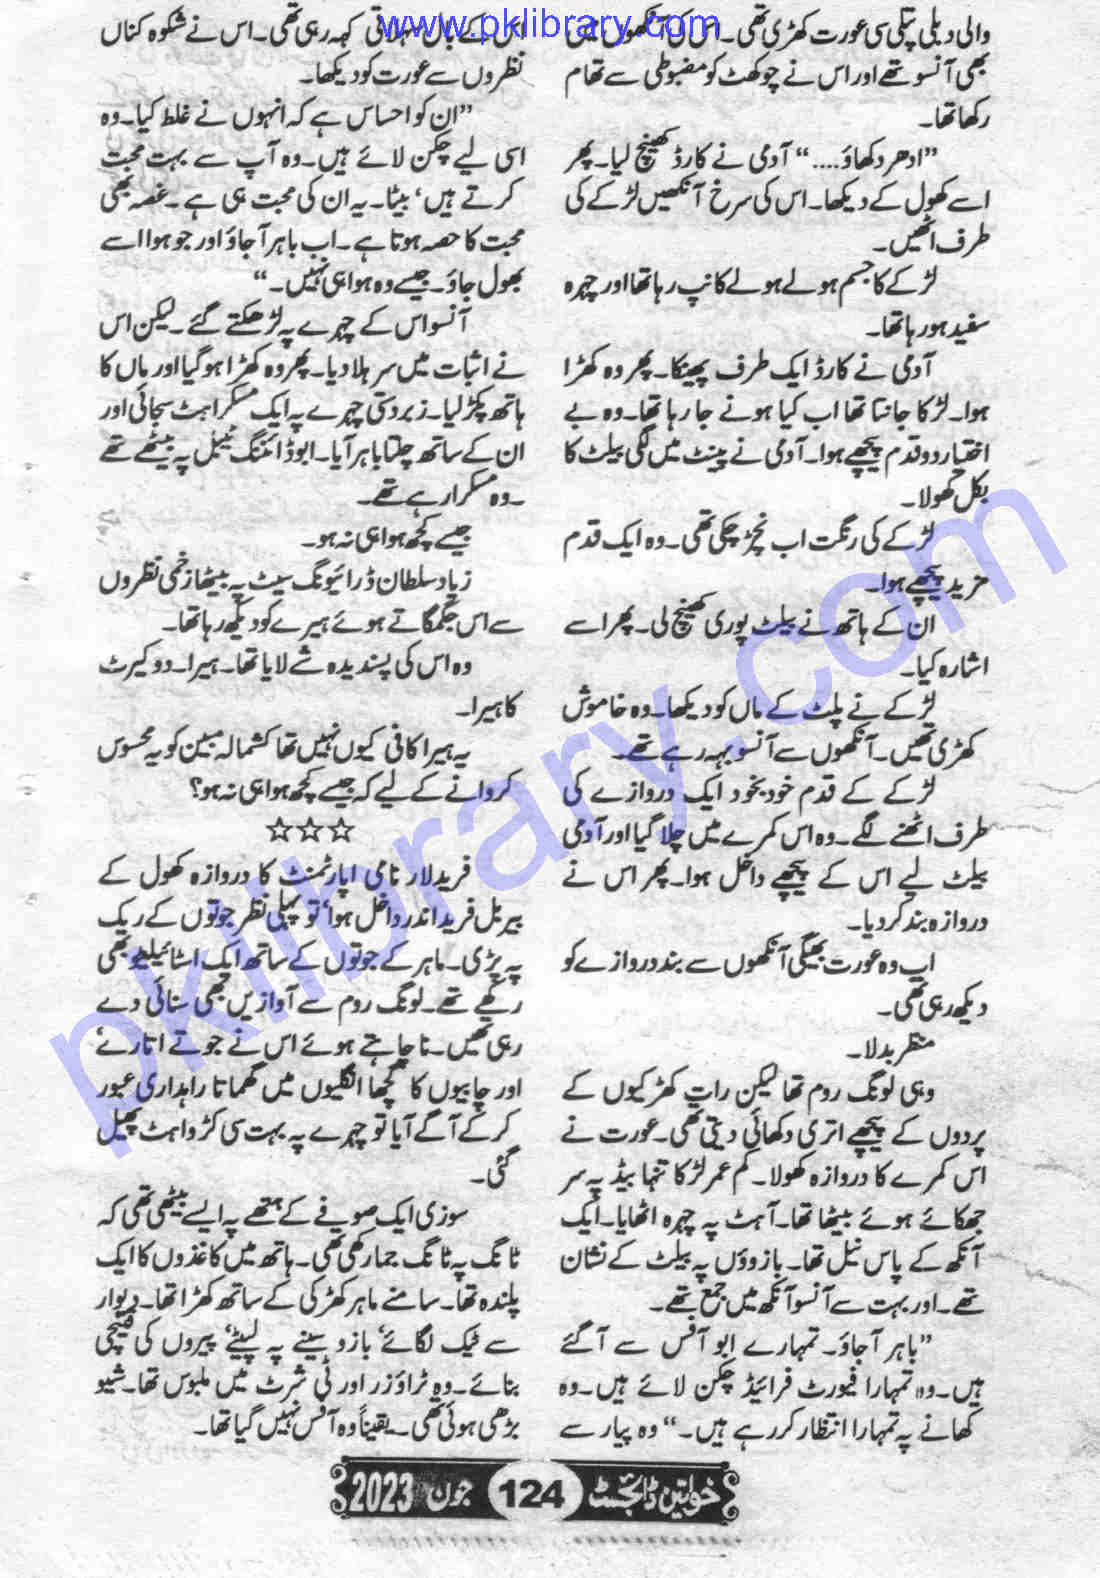 www.pklibrary.com
والی دبلی پتلی سی عورت کھڑی تھی۔ اس کی آنکھوں میں
بھی آنسو تھے اور اس نے چوکھٹ کو مضبوطی سے تھام
رکھا تھا۔
”ادھر دکھاؤ....“ آدمی نے کارڈ کھینچ لیا۔ پھر
اسے کھول کے دیکھا۔ اس کی سرخ آنکھیں لڑکے کی
طرف اٹھیں۔
لڑکے کا جسم ہولے ہولے کانپ رہا تھا اور چہرہ
سفید ہو رہا تھا۔
آدمی نے کارڈ ایک طرف پھینکا۔ پھر وہ کھڑا
ہوا۔ لڑکا جانتا تھا اب کیا ہونے جا رہا تھا۔ وہ بے
اختیار دو قدم پیچھے ہوا۔ آدمی نے پینٹ میں لگی بیلٹ کا
بکل کھولا۔
لڑکے کی رنگت اب نچڑ چکی تھی۔ وہ ایک قدم
مزید پیچھے ہوا۔
ان کے ہاتھ نے بیلٹ پوری کھینچ لی۔ پھر اسے
اشارہ کیا۔
لڑکے نے پلٹ کے ماں کو دیکھا۔ وہ خاموش
کھڑی تھیں۔ آنکھوں سے آنسو بہہ رہے تھے۔
لڑکے کے قدم خود بخود ایک دروازے کی
طرف اٹھنے لگے۔ وہ اس کمرے میں چلا گیا اور آدمی
بیلٹ لیے اس کے پیچھے داخل ہوا۔ پھر اس نے
دروازہ بند کر دیا۔
اب وہ عورت بھیگی آنکھوں سے بند دروازے کو
دیکھ رہی تھی۔
منظر بدلا۔
وہی لونگ روم تھا لیکن رات کھڑکیوں کے
پردوں کے پیچھے اتری دکھائی دیتی تھی۔ عورت نے
اس کمرے کا دروازہ کھولا۔ کم عمر لڑکا تنہا بیڈ پہ سر
جھکائے ہوئے بیٹھا تھا۔ آہٹ پہ چہرہ اٹھایا۔ ایک
آنکھ کے پاس نیل تھا۔ بازوؤں پہ بیلٹ کے نشان
تھے۔ اور بہت سے آنسو آنکھ میں جمع تھے۔
”باہر آ جاؤ۔ تمہارے ابو آفس سے آ گئے
ہیں۔ وہ تمہارا فیورٹ فرائیڈ چکن لائے ہیں۔ وہ
کھانے پہ تمہارا انتظار کر رہے ہیں۔“ وہ پیار سے
اس کے بال سہلاتی کہہ رہی تھی۔ اس نے شکوہ کناں
نظروں سے عورت کو دیکھا۔
”ان کو احساس ہے کہ انہوں نے غلط کیا۔ وہ
اسی لیے چکن لائے ہیں۔ وہ آپ سے بہت محبت
کرتے ہیں‘ بیٹا۔ یہ ان کی محبت ہی ہے۔ غصہ بھی
محبت کا حصہ ہوتا ہے۔ اب باہر آ جاؤ اور جو ہوا اسے
بھول جاؤ۔ جیسے وہ ہوا ہی نہیں۔“
آنسو اس کے چہرے پہ لڑھکتے گئے۔ لیکن اس
نے اثبات میں سر ہلا دیا۔ پھر وہ کھڑا ہو گیا اور ماں کا
ہاتھ پکڑ لیا۔ زبردستی چہرے پہ ایک مسکراہٹ سجائی اور
ان کے ساتھ چلتا باہر آیا۔ ابو ڈائننگ ٹیبل پہ بیٹھے تھے
۔ وہ مسکرا رہے تھے۔
جیسے کچھ ہوا ہی نہ ہو۔
زیاد سلطان ڈرائیونگ سیٹ پہ بیٹھا زخمی نظروں
سے اس جگمگاتے ہوئے ہیرے کو دیکھ رہا تھا۔
وہ اس کی پسندیدہ شے لایا تھا۔ ہیرا۔ دو کیرٹ
کا ہیرا۔
یہ ہیرا کافی کیوں نہیں تھا کشمالہ مبین کو یہ محسوس
کروانے کے لیے کہ جیسے کچھ ہوا ہی نہ ہو؟
☆☆☆
فرید لار نامی اپارٹمنٹ کا دروازہ کھول کے
بیربل فرید اندر داخل ہوا‘ تو پہلی نظر جوتوں کے ریک
پہ پڑی۔ ماہر کے جوتوں کے ساتھ ایک اسٹائیلیٹو بھی
رکھے تھے۔ لونگ روم سے آوازیں بھی سنائی دے
رہی تھیں۔ نا چاہتے ہوئے اس نے جوتے اتارے‘
اور چابیوں کا گچھا انگلیوں میں گھماتا راہداری عبور
کر کے آگے آیا تو چہرے پہ بہت سی کڑواہٹ پھیل
گئی۔
سوزی ایک صوفے کے ہتھے پہ ایسے بیٹھی تھی کہ
ٹانگ پہ ٹانگ جما رکھی تھی۔ ہاتھ میں کاغذوں کا ایک
پلندہ تھا۔ سامنے ماہر کھڑکی کے ساتھ کھڑا تھا۔ دیوار
سے ٹیک لگائے‘ بازو سینے پہ لپیٹے‘ پیروں کی قینچی
بنائے۔ وہ ٹراؤزر اور ٹی شرٹ میں ملبوس تھا۔ شیو
بڑھی ہوئی تھی۔ یقیناً وہ آفس نہیں گیا تھا۔
خواتین ڈائجسٹ 124 جون 2023
pklibrary.com